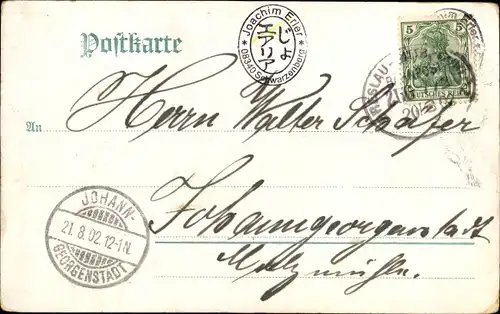 Postkarte
Joachim Erler
じょ
エアリア
* 08340 Schwarzenberg *
5
DEUTSCHES REICH
BRESLAU-
An Herrn Walter Schäfer
Johanngeorgenstadt
JOHANN-
21.8.02.12-1N.
GEORGENSTADT